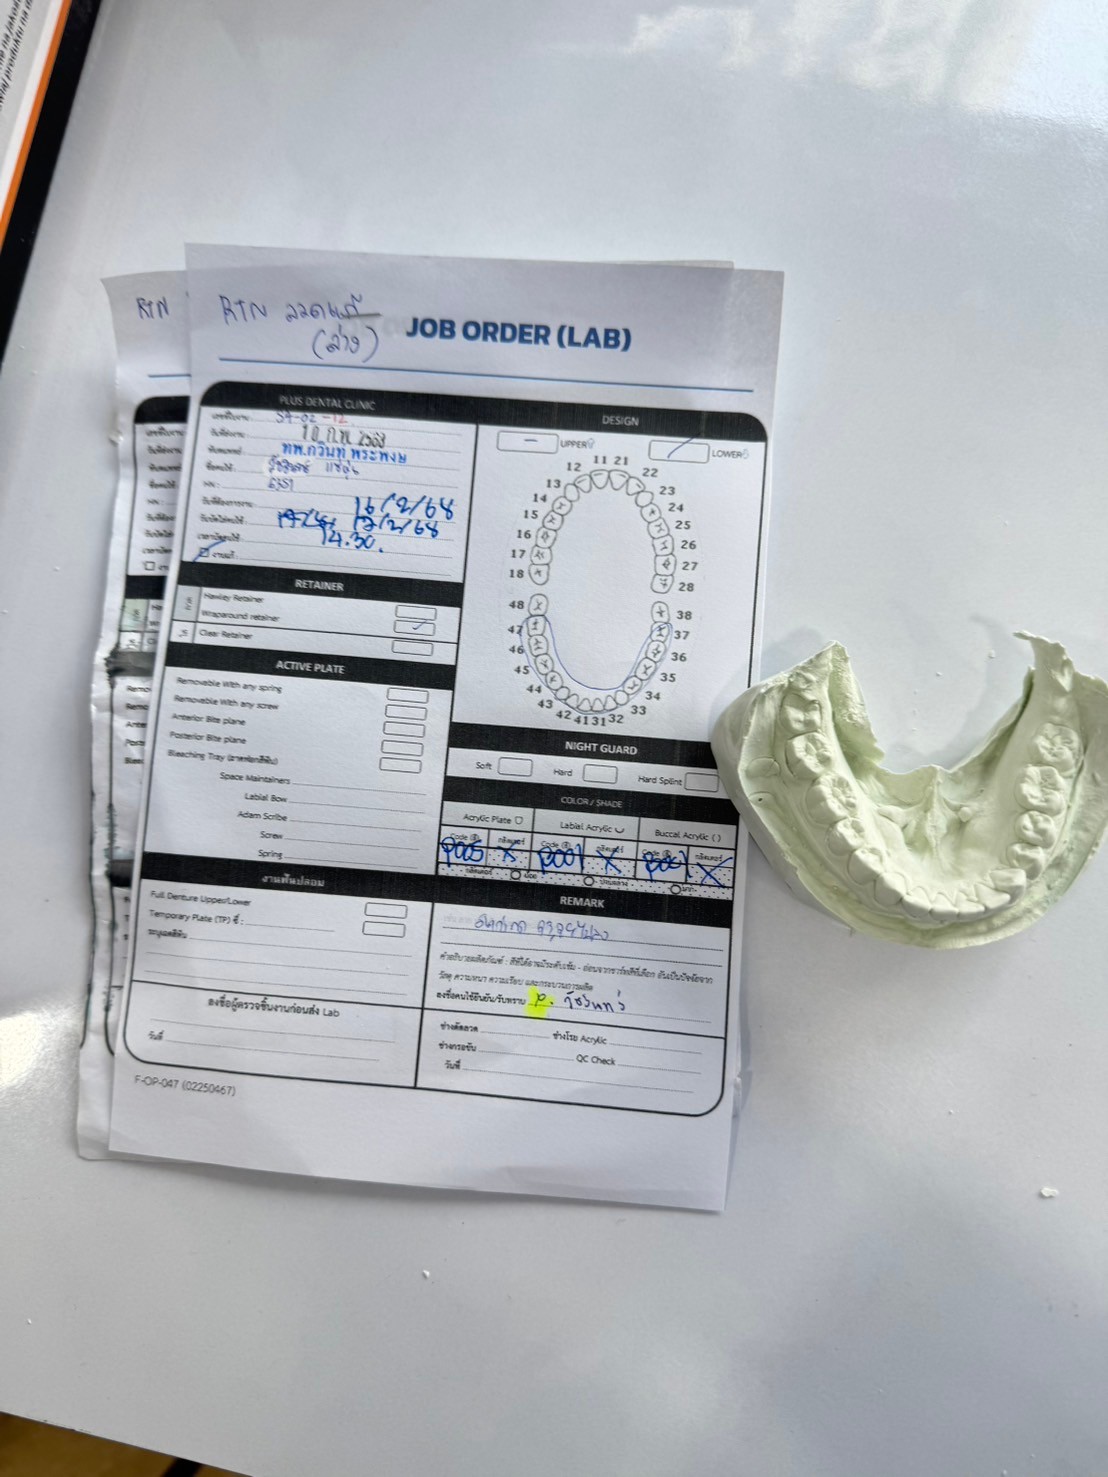 RTN
RTN ลวดแก้
(ล่าง)
JOB ORDER (LAB)
PLUS DENTAL CLINIC
เลขที่ใบงาน: SA-02-12
วันที่ส่งงาน: 10 ก.พ. 2568
ทพ.กวินท์ พระพงษ์
ชื่อคนไข้:
HN: 6351
วันที่ต้องการงาน: 16/2/68
วันนัดใส่คนไข้: 17/2/68
เวลานัดคนไข้: 14.30.
งานแก้
RETAINER
Hawley Retainer
Wraparound retainer ✓
Clear Retainer
ACTIVE PLATE
Removable With any spring
Removable With any screw
Anterior Bite plane
Posterior Bite plane
Bleaching Tray (ถาดฟอกสีฟัน)
Space Maintainers
Labial Bow
Adam Scribe
Screw
Spring
งานฟันปลอม
Full Denture Upper/Lower
Temporary Plate (TP) ซี่ :
ระบุเฉดสีฟัน
ลงชื่อผู้ตรวจชิ้นงานก่อนส่ง Lab
วันที่
F-OP-047 (02250467)
DESIGN
UPPER
LOWER
11 21
12 22
13 23
14 24
15 25
16 26
17 27
18 28
48 38
47 37
46 36
45 35
44 34
43 33
42 41 31 32
NIGHT GUARD
Soft Hard Hard Splint
COLOR / SHADE
Acrylic Plate Labial Acrylic Buccal Acrylic ( )
Code (สี) กลิตเตอร์ Code (สี) กลิตเตอร์ Code (สี) กลิตเตอร์
P005 X P001 X P001 X
กลิตเตอร์ น้อย ปานกลาง มาก
REMARK
คำอธิบายผลิตภัณฑ์ : สีที่ได้อาจมีระดับเข้ม - อ่อนจากชาร์ทสีที่เลือก อันเป็นปัจจัยจาก
วัสดุ ความหนา ความเรียบ และกระบวนการผลิต
ลงชื่อคนไข้ยืนยัน/รับทราบ P.
ช่างดัดลวด ช่างโรย Acrylic
ช่างกรอขัด QC Check
วันที่